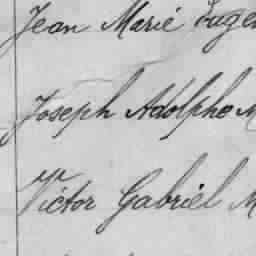 Jean Marié Euge
Joseph Adolphe M
Victor Gabriel M